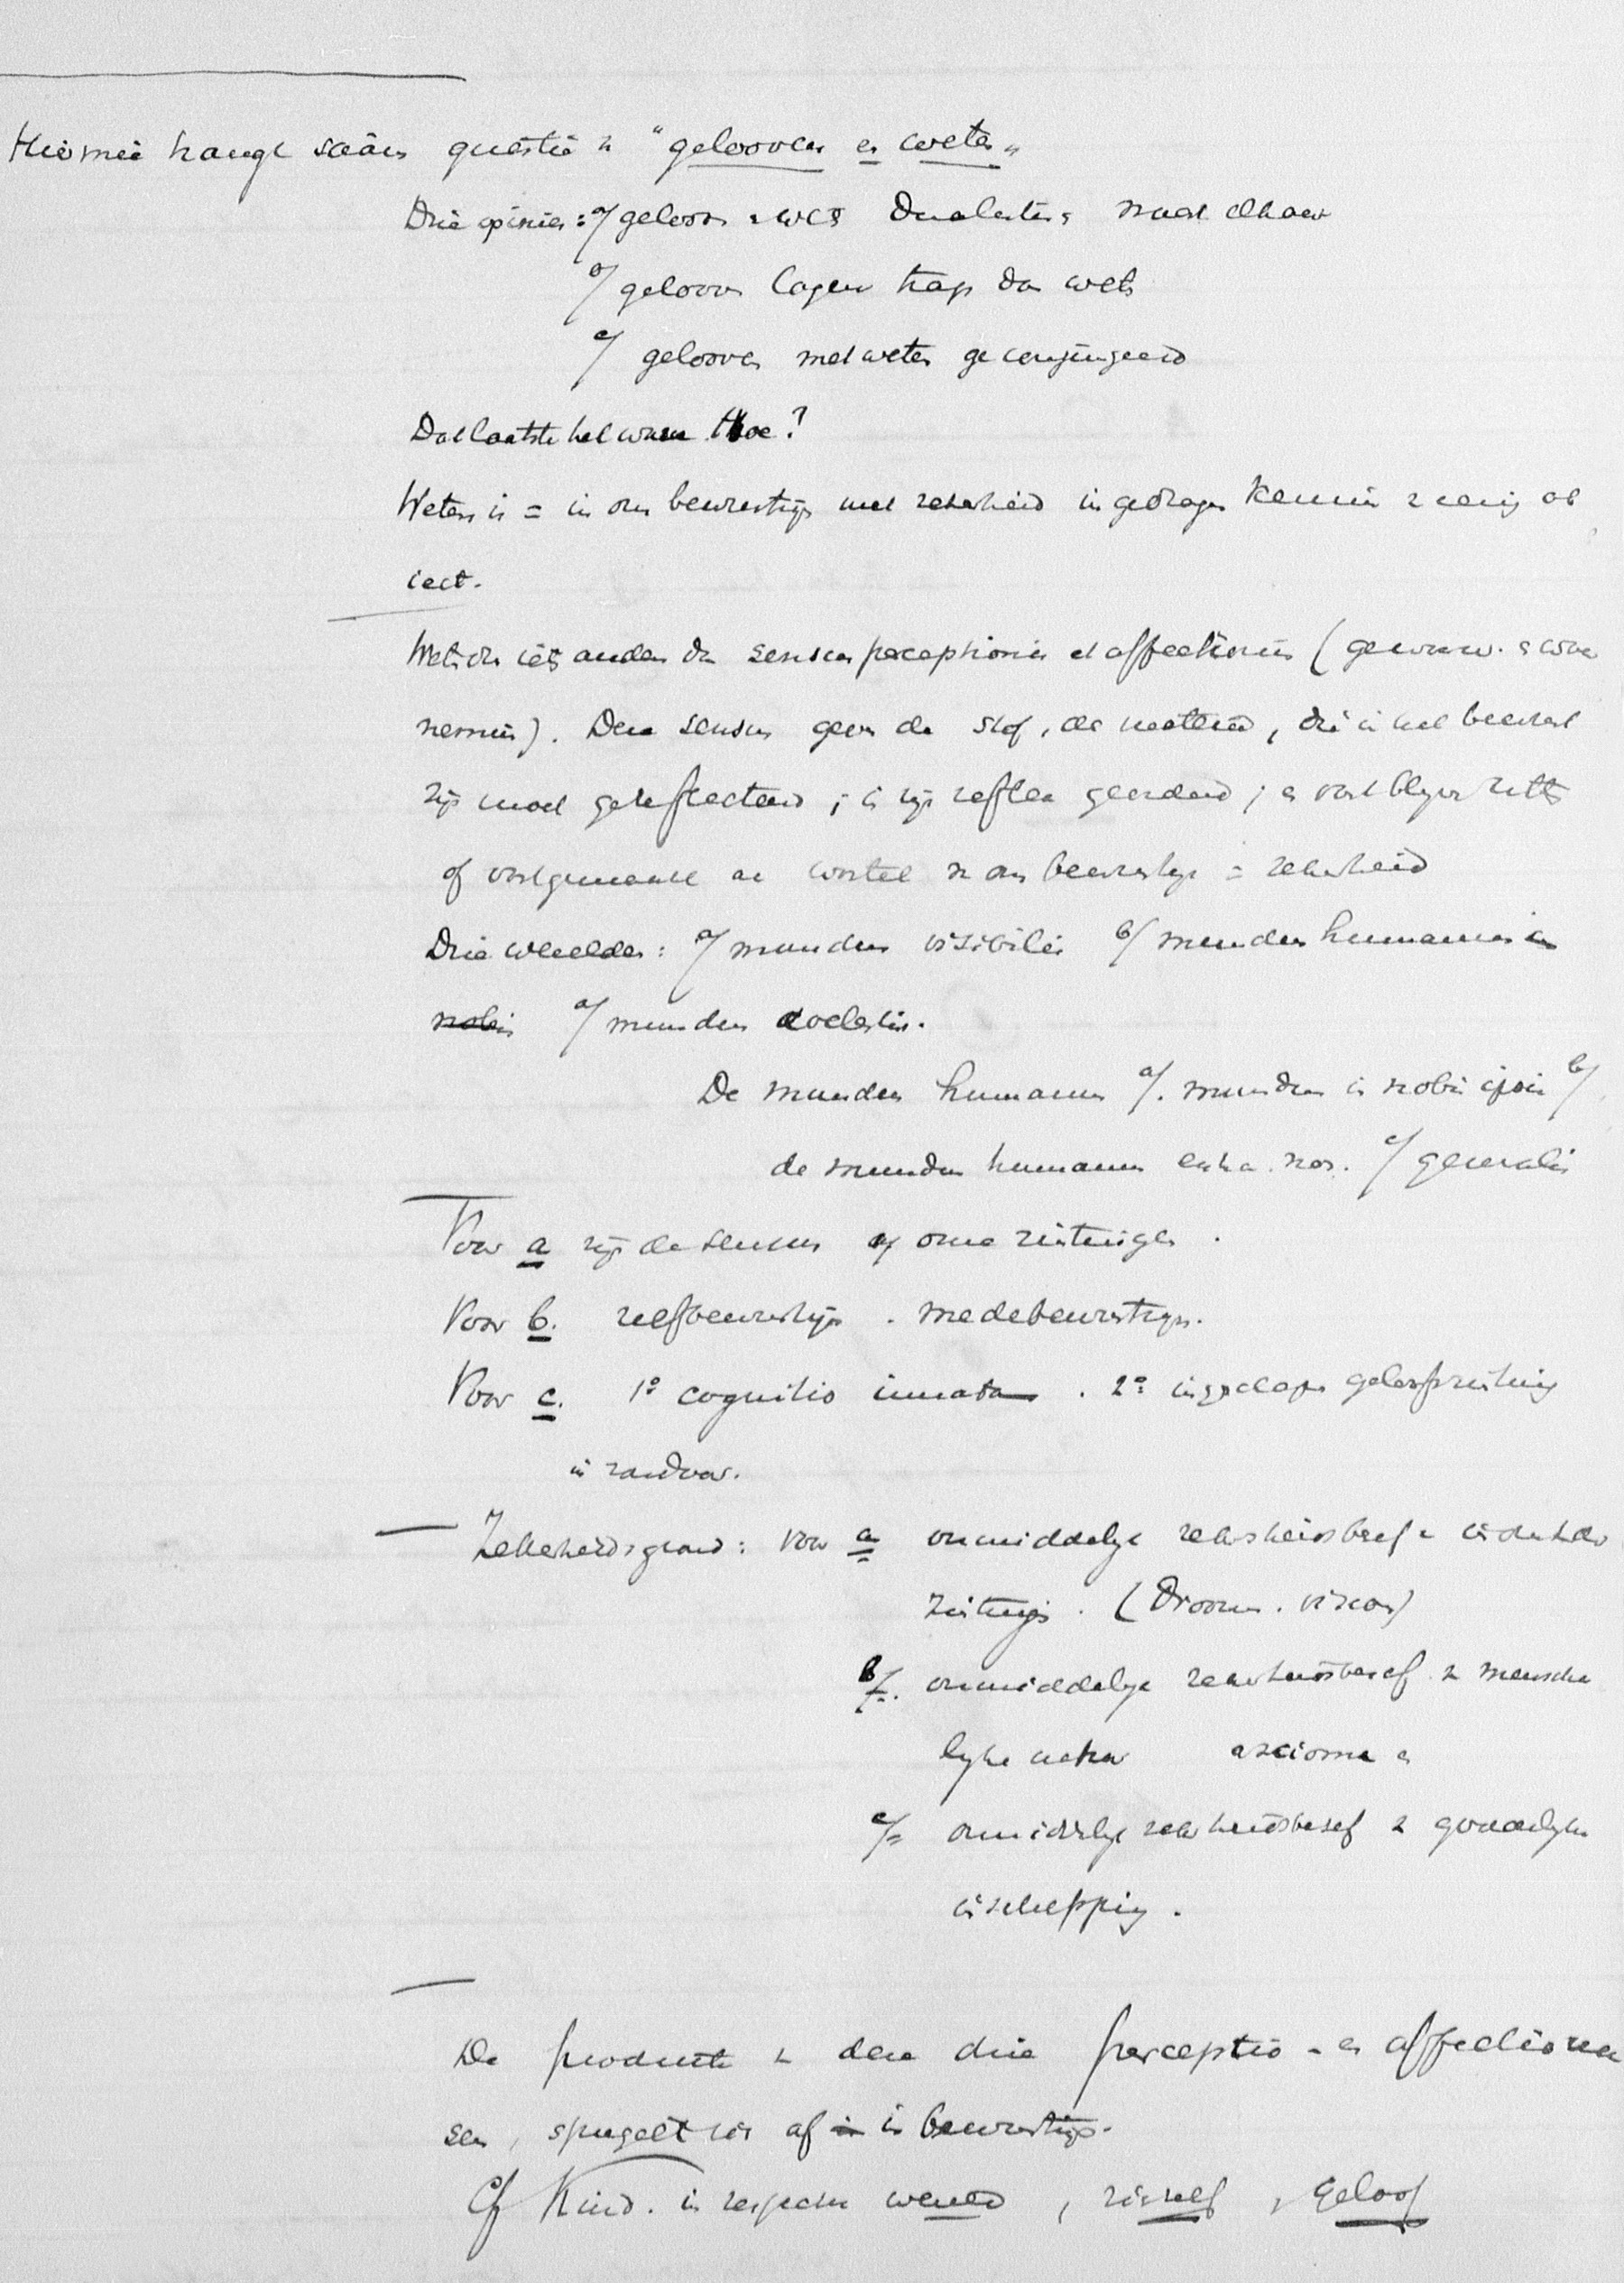 Hiermeê hangt saâm questie v "gelooven en weten"
Drie opinies: a/ geloov en wet Dualistis naast elkaar
b/ gelooven lager trap dan wet
c/ gelooven met weten geconjungeerd
Dat laatste het ware. Hoe?
Weten is = in ons bewustzijn met zekerheid ingedragen kennis v eenig ob
iect.
iets anders dan sensus perceptionis et affectionis (gewaarw. en waar
neming). Deze sensus geven de stof, de materie, die in het bewust
zijn moet gereflecteerd; in zijn reflex geordend; en
of vastgemaakt aan wortel v ons bewustzijn = zekerheid
Drie werelden: a/ mundus visibilis b/ mundus humanus in
nobis c/ mundus coelestis.
De mundus humanus a/. mundus in nobis ipsis b/
de mundus humanus extra nos. c/ generalis
Voor a zijn de sensus onze zintuigen.
Voor b. zelfbewustzijn. medebewustzijn.
Voor c. 1° cognitio innata. 2° ingeschapen
in zondaar.
Zekerheidsgrond: voor a onmiddelijk zekerheidsbesef v
zintuig. (Droom. visioen)
b/. onmiddelijk zekerheidsbesef v mensche
lijke natuur axioma
c/= onmiddelijk zekerheidsbesef v
schepping.
De producten v deze drie perceptie- en affectieree
sen, spiegelt zich af in bewustzijn.
Cf Kind. in respectu wereld, zichzelf, geloof